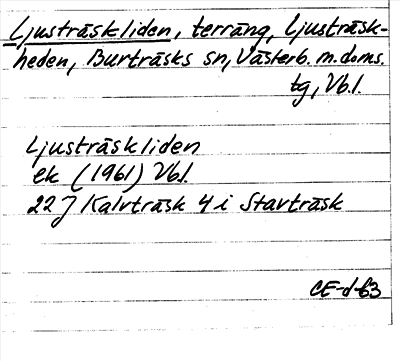 Ljusträskliden, terräng, Ljusträsk-
heden, Burträsks sn, Västerb. m. doms.
tg, Vb.l.
Ljusträskliden
ek (1961) Vbl.
22J Kalvträsk 4 i Stavträsk
CE-d-63